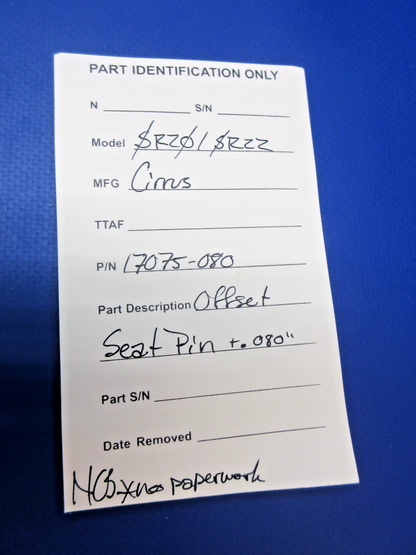 PART IDENTIFICATION ONLY
N ____________ S/N __________
Model SR20/SR22
MFG Cirrus
TTAF
P/N 17075-080
Part Description Offset
Seat Pin +.080"
Part S/N
Date Removed
no paperwork